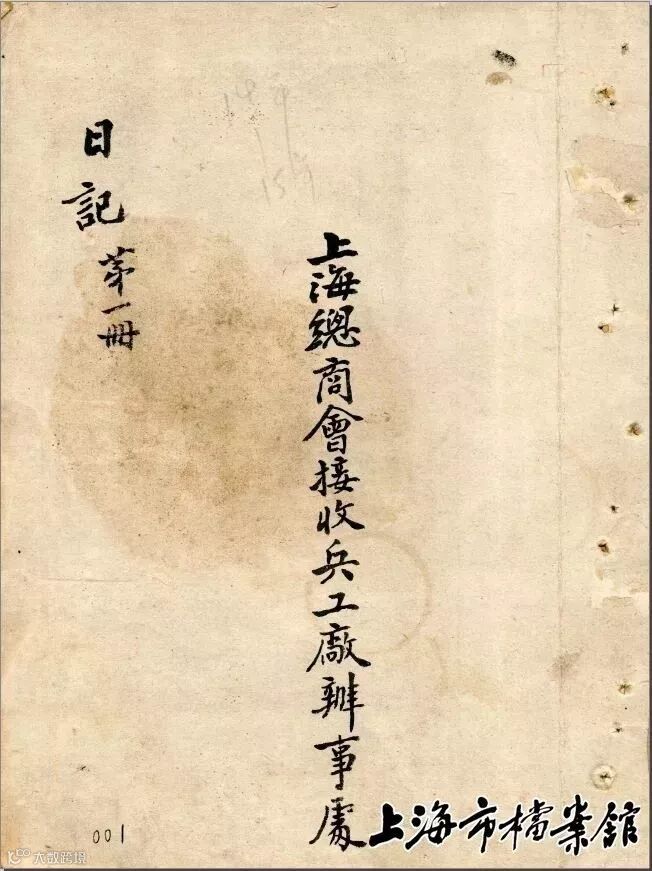 上海總商會接收兵工廠辦事處
日記 第一冊
001
上海市檔案館
大數跨境